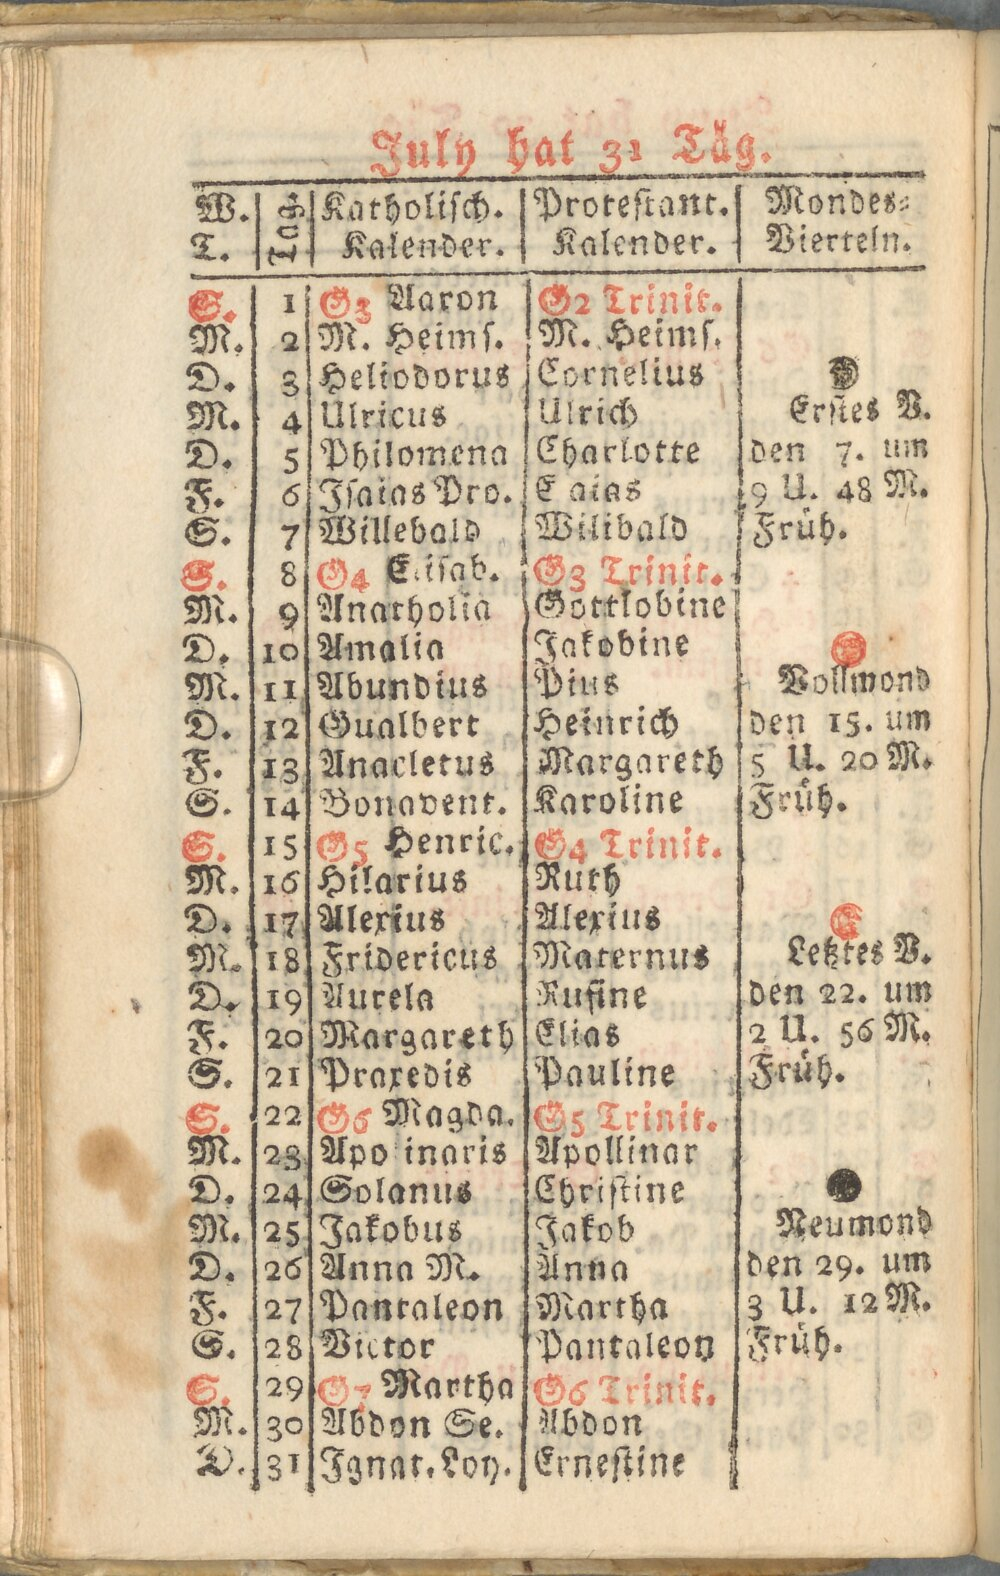 July hat 31 Täg.
W. Tag Katholisch. Protestant. Mondes=
T. Kalender. Kalender. Vierteln.
S. 1 G3 Aaron G2 Trinit.
M. 2 M. Heims. M. Heims.
D. 3 Heliodorus Cornelius
M. 4 Ulricus Ulrich Erstes V.
D. 5 Philomena Charlotte den 7. um
F. 6 Isaias Pro. E aias 9 U. 48 M.
S. 7 Willebald Wilibald Früh.
S. 8 G4 Elisab. G3 Trinit.
M. 9 Anatholia Gottlobine
D. 10 Amalia Jakobine
M. 11 Abundius Pius Vollmond
D. 12 Gualbert Heinrich den 15. um
F. 13 Anacletus Margareth 5 U. 20 M.
S. 14 Bonavent. Karoline Früh.
S. 15 G5 Henric. G4 Trinit.
M. 16 Hilarius Ruth
D. 17 Alexius Alexius
M. 18 Fridericus Maternus Letztes V.
D. 19 Aurela Rufine den 22. um
F. 20 Margareth Elias 2 U. 56 M.
S. 21 Praxedis Pauline Früh.
S. 22 G6 Magda. G5 Trinit.
M. 23 Apo inaris Apollinar
D. 24 Solanus Christine
M. 25 Jakobus Jakob Neumond
D. 26 Anna M. Anna den 29. um
F. 27 Pantaleon Martha 3 U. 12 M.
S. 28 Victor Pantaleon Früh.
S. 29 G7 Martha G6 Trinit.
M. 30 Abdon Se. Abdon
D. 31 Ignat. Loy. Ernestine